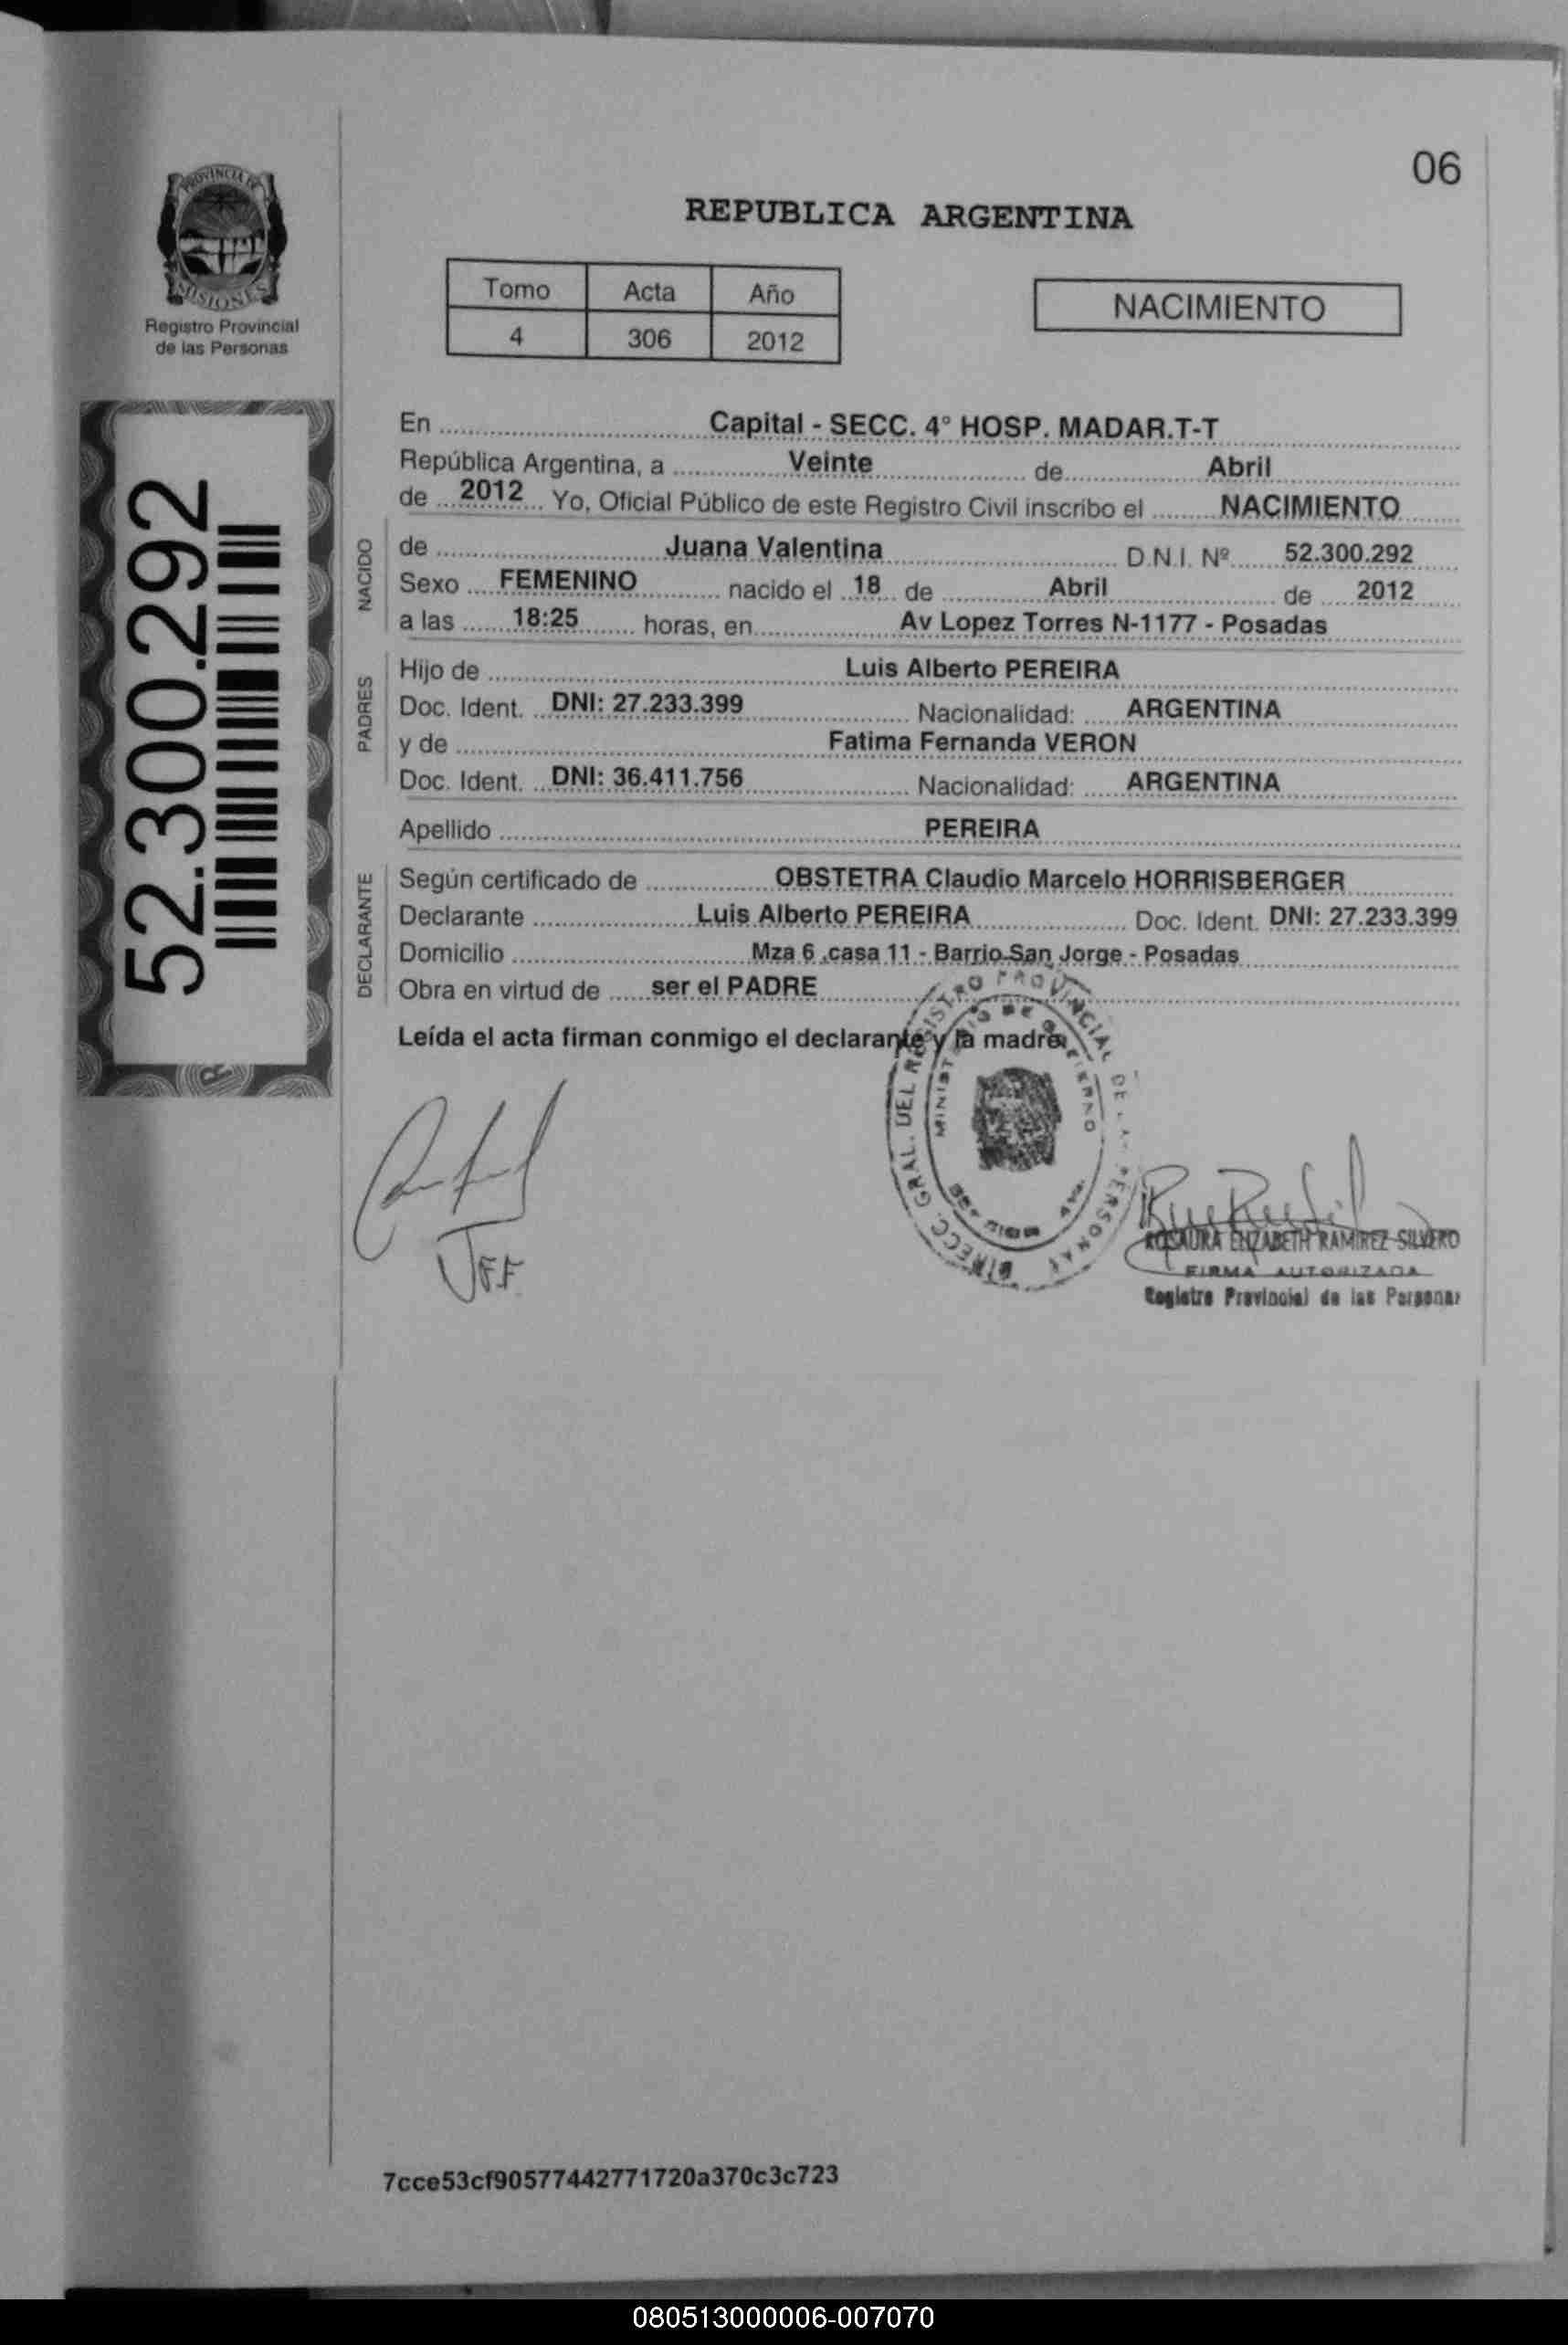 06
PROVINCIA DE
MISIONES
Registro Provincial
de las Personas
REPUBLICA ARGENTINA
Tomo Acta Año
4 306 2012
NACIMIENTO
52.300.292
En Capital - SECC. 4° HOSP. MADAR.T-T
República Argentina, a Veinte de Abril
de 2012 Yo, Oficial Público de este Registro Civil inscribo el NACIMIENTO
NACIDO
de Juana Valentina D.N.I. Nº 52.300.292
Sexo FEMENINO nacido el 18 de Abril de 2012
a las 18:25 horas, en Av Lopez Torres N-1177 - Posadas
PADRES
Hijo de Luis Alberto PEREIRA
Doc. Ident. DNI: 27.233.399 Nacionalidad: ARGENTINA
y de Fatima Fernanda VERON
Doc. Ident. DNI: 36.411.756 Nacionalidad: ARGENTINA
Apellido PEREIRA
DECLARANTE
Según certificado de OBSTETRA Claudio Marcelo HORRISBERGER
Declarante Luis Alberto PEREIRA Doc. Ident. DNI: 27.233.399
Domicilio Mza 6 ,casa 11 - Barrio San Jorge - Posadas
Obra en virtud de ser el PADRE
Leída el acta firman conmigo el declarante y la madre
DIRECC. GRAL. DEL REGISTRO PROVINCIAL DE LAS PERSONAS
MINISTERIO DE GOBIERNO
ROSAURA ELIZABETH RAMIREZ SILVERO
FIRMA AUTORIZADA
Registro Provincial de las Personas
7cce53cf90577442771720a370c3c723
080513000006-007070